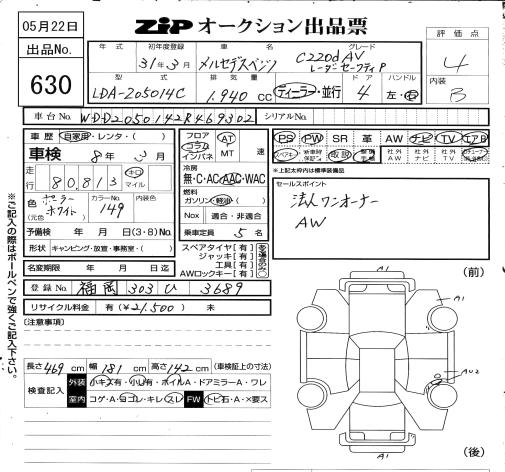 05月22日
ZiP オークション出品票
評価点
出品No.
630
年式
初年度登録
車名
グレード
31年3月
メルセデスベンツ
C220d AV
レーダーセーフティP
4
型式
排気量
ドア
ハンドル
LDA-205014C
1.940 cc
ディーラー・並行
4
左・右
内装
B
車台No.
WDD2050142R469302
シリアルNo.
車歴
自家用・レンタ・( )
車検
8年3月
走行
80,813
キロ
マイル
色
(元色)
ポーラーホワイト
カラーNo.
149
内装色
予備検
年 月 日 (3・8) No.
形状
キャンピング・放宣・事務室・( )
名変期限
年 月 日迄
フロア
コラム
インパネ
AT
MT
速
冷房
無・C・AC・AAC・WAC
燃料
ガソリン・軽油・( )
Nox
適合・非適合
乗車定員
5名
スペアタイヤ[有]
ジャッキ[有]
工具[有]
AWロックキー[有]
PS PW SR 革 AW ナビ TV エアB
スペアキー
取説
社外AW
社外ナビ
社外TV
※上記太枠内は標準装備品
セールスポイント
法人ワンオーナー
AW
登録No.
福岡 303 ひ 3689
リサイクル料金
有(¥21,500) 未
(注意事項)
長さ469cm
幅181cm
高さ142cm
(車検証上の寸法)
検査記入
外装
小キズ有・小凹有・ボイルA・ドアミラーA・ワレ
室内
コゲ・A・ヨゴレ・キレ・スレ
FW
トビ石・A・×要ス
※ご記入の際はボールペンで強くご記入下さい。
(前)
A1
A1
AU2
A1
(後)